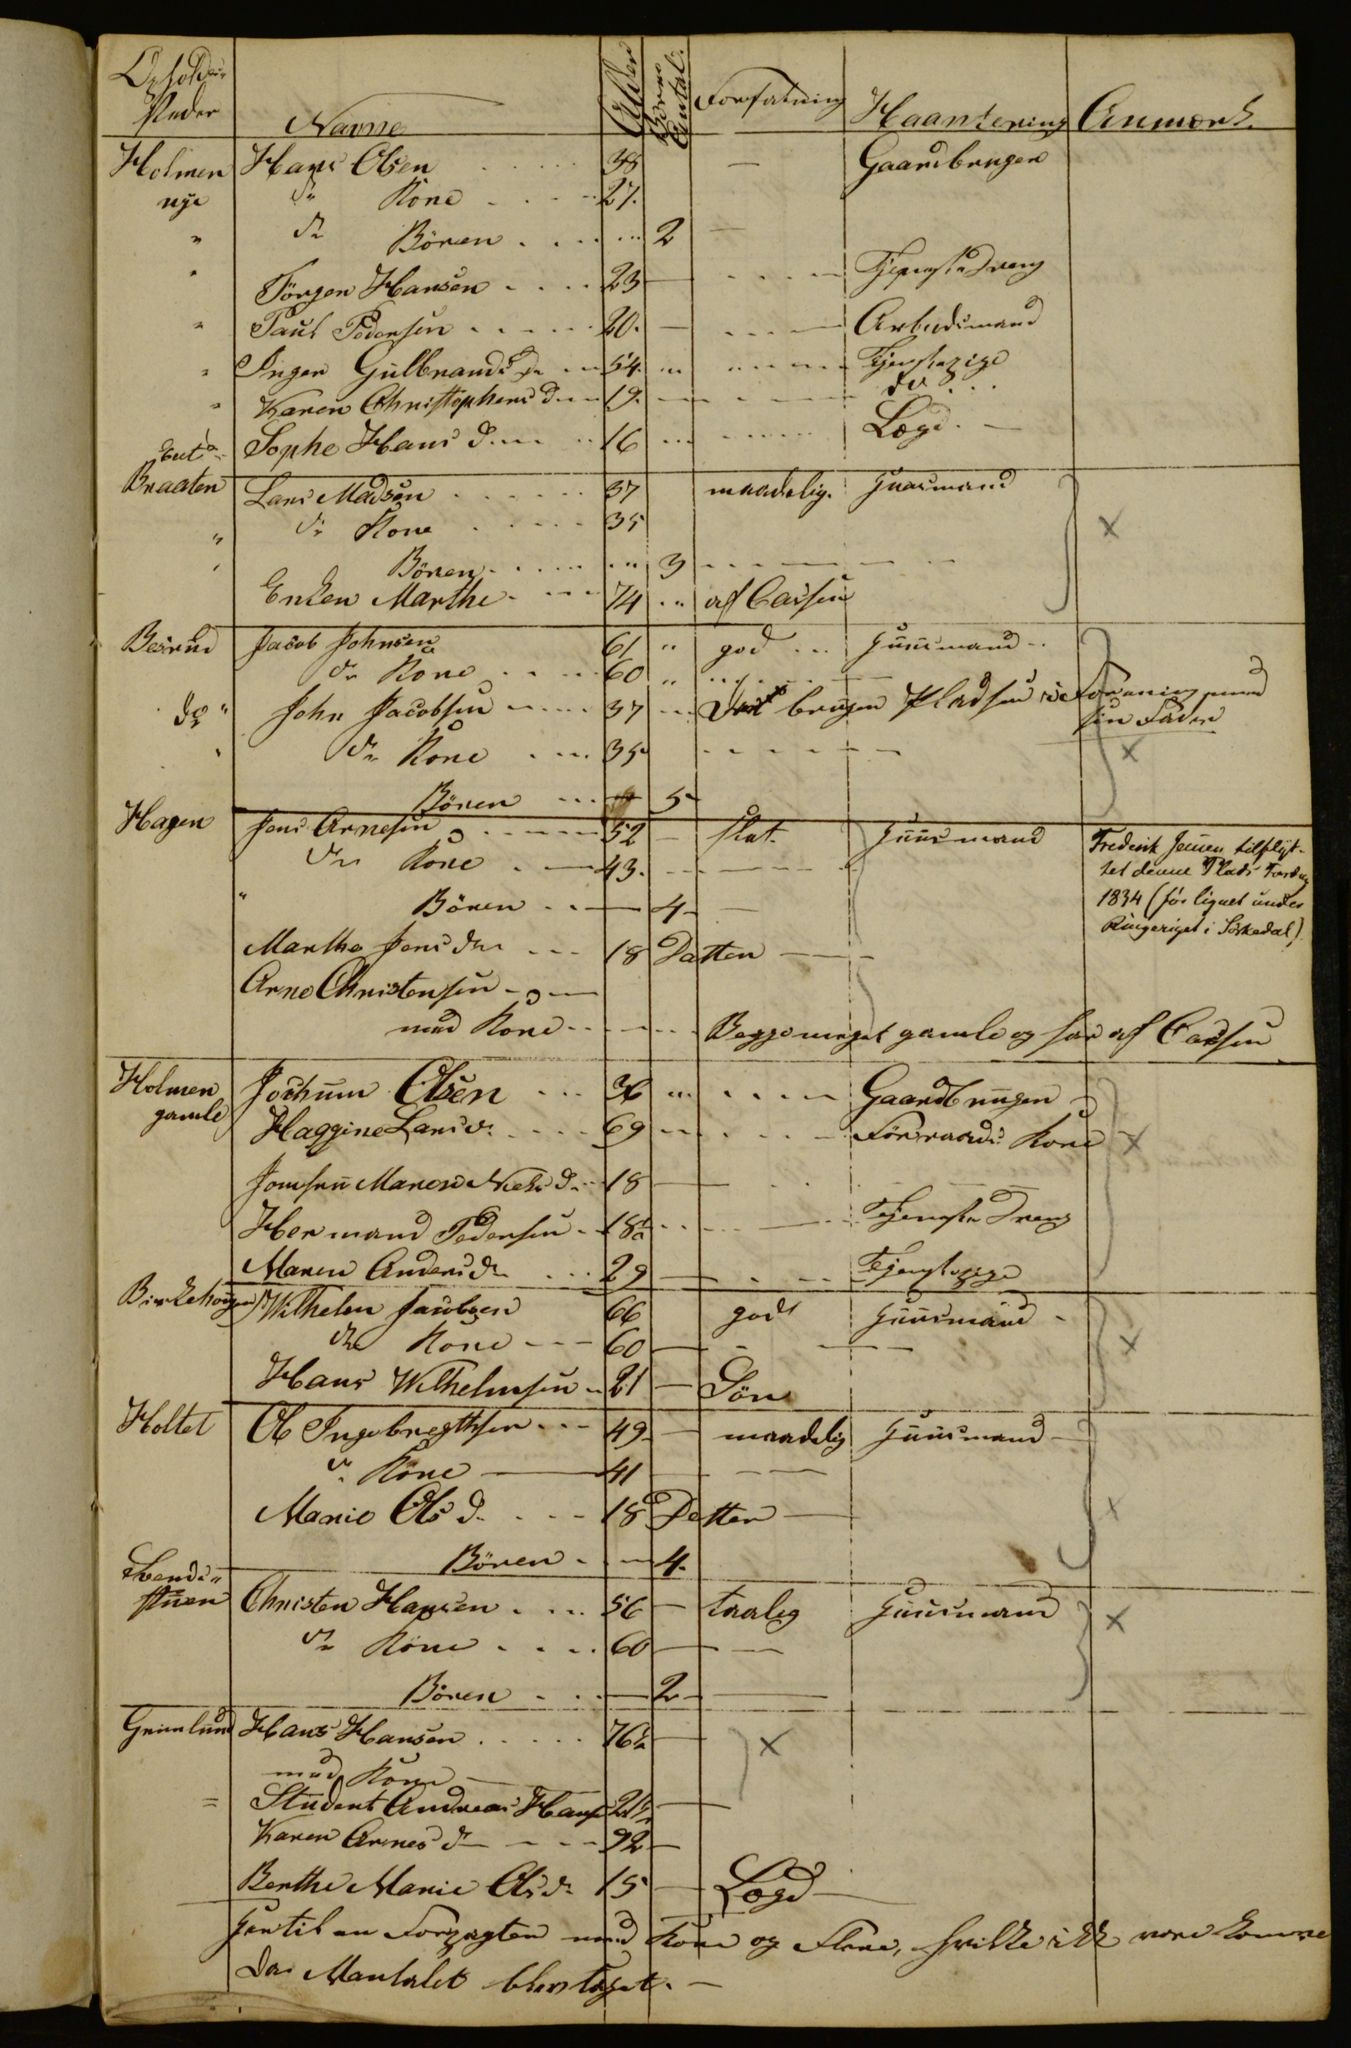 Opholds-
steder Navne Alder Börne Antal. Forfatning Haantering Anmærk.
Holmen Hans Olsen 38 — Gaardbruger
nye dr Kone 27.
" dr Bören 2 —
" Jörgen Hansen 23 — Tjenestedreng
" Paul Pedersen 20. — Arbeidsmand
" Inger Gulbrands dr 54. Tjenstepige
" Karen Christophers d 19. do
" Sophe Hans d. 16 Lægd. —
Braaten Lars Madsen 37 maadelig. Huusmand
" dr Kone 35 x
" Bören 3
Enken Marthe 74 af Cassen
Beserud Jacob Johnsen 61 " god Huusmand
dr Kone 60 "
do " John Jacobsen 37 bruger Pladsen i Forening med
sin Fader
" dr Kone 35. x
Bören 5
Hagen Jens Arnesen 52 — slet. Huusmand Frederik Jensen tilflyt-
dr Kone 43. tet denne Plads Fardag
" Bören 4 — 1834 (før lignet under
Ringeriget i Sörkedal)
Marthe Jens dr 18 Datter
Arne Christensen
med Kone Begge meget gamle og har af Cassen
Holmen Jochum Olsen 36 Gaardbruger
gamle Haggine Lars d. 69 Forraads Kone x
Jomfru Maren Niels d. 18 —
Hermand Pedersen 18 1/2 Tjeneste Dreng
Maren Anders dr 29 — Tjenstepige
Birkehougen Wilhelm Jacobsen 66 godt Huusmand
dr Kone 60 — x
Hans Wilhelmsen 21 — Sön
Holtet Ole Ingebregthsen 49 — maadelig Huusmand
dr Kone 41
Marie Ols d. 18 Datter x
Bören 4.
Svends-
stuen Christen Hansen 56 — taalig Huusmand x
dr Kone 60 —
Bören 2 —
Grimlund Hans Hansen 76 1/2 — x
med Kone
= Student Andreas Hansen 21 1/2 —
Karen Arnes d 92 —
Berthe Marie Ols d. 15 — Lægd —
Hertil en Forpagter med Kone og Flere, hvilke ikke vare komne
da Mantalet blev taget. —